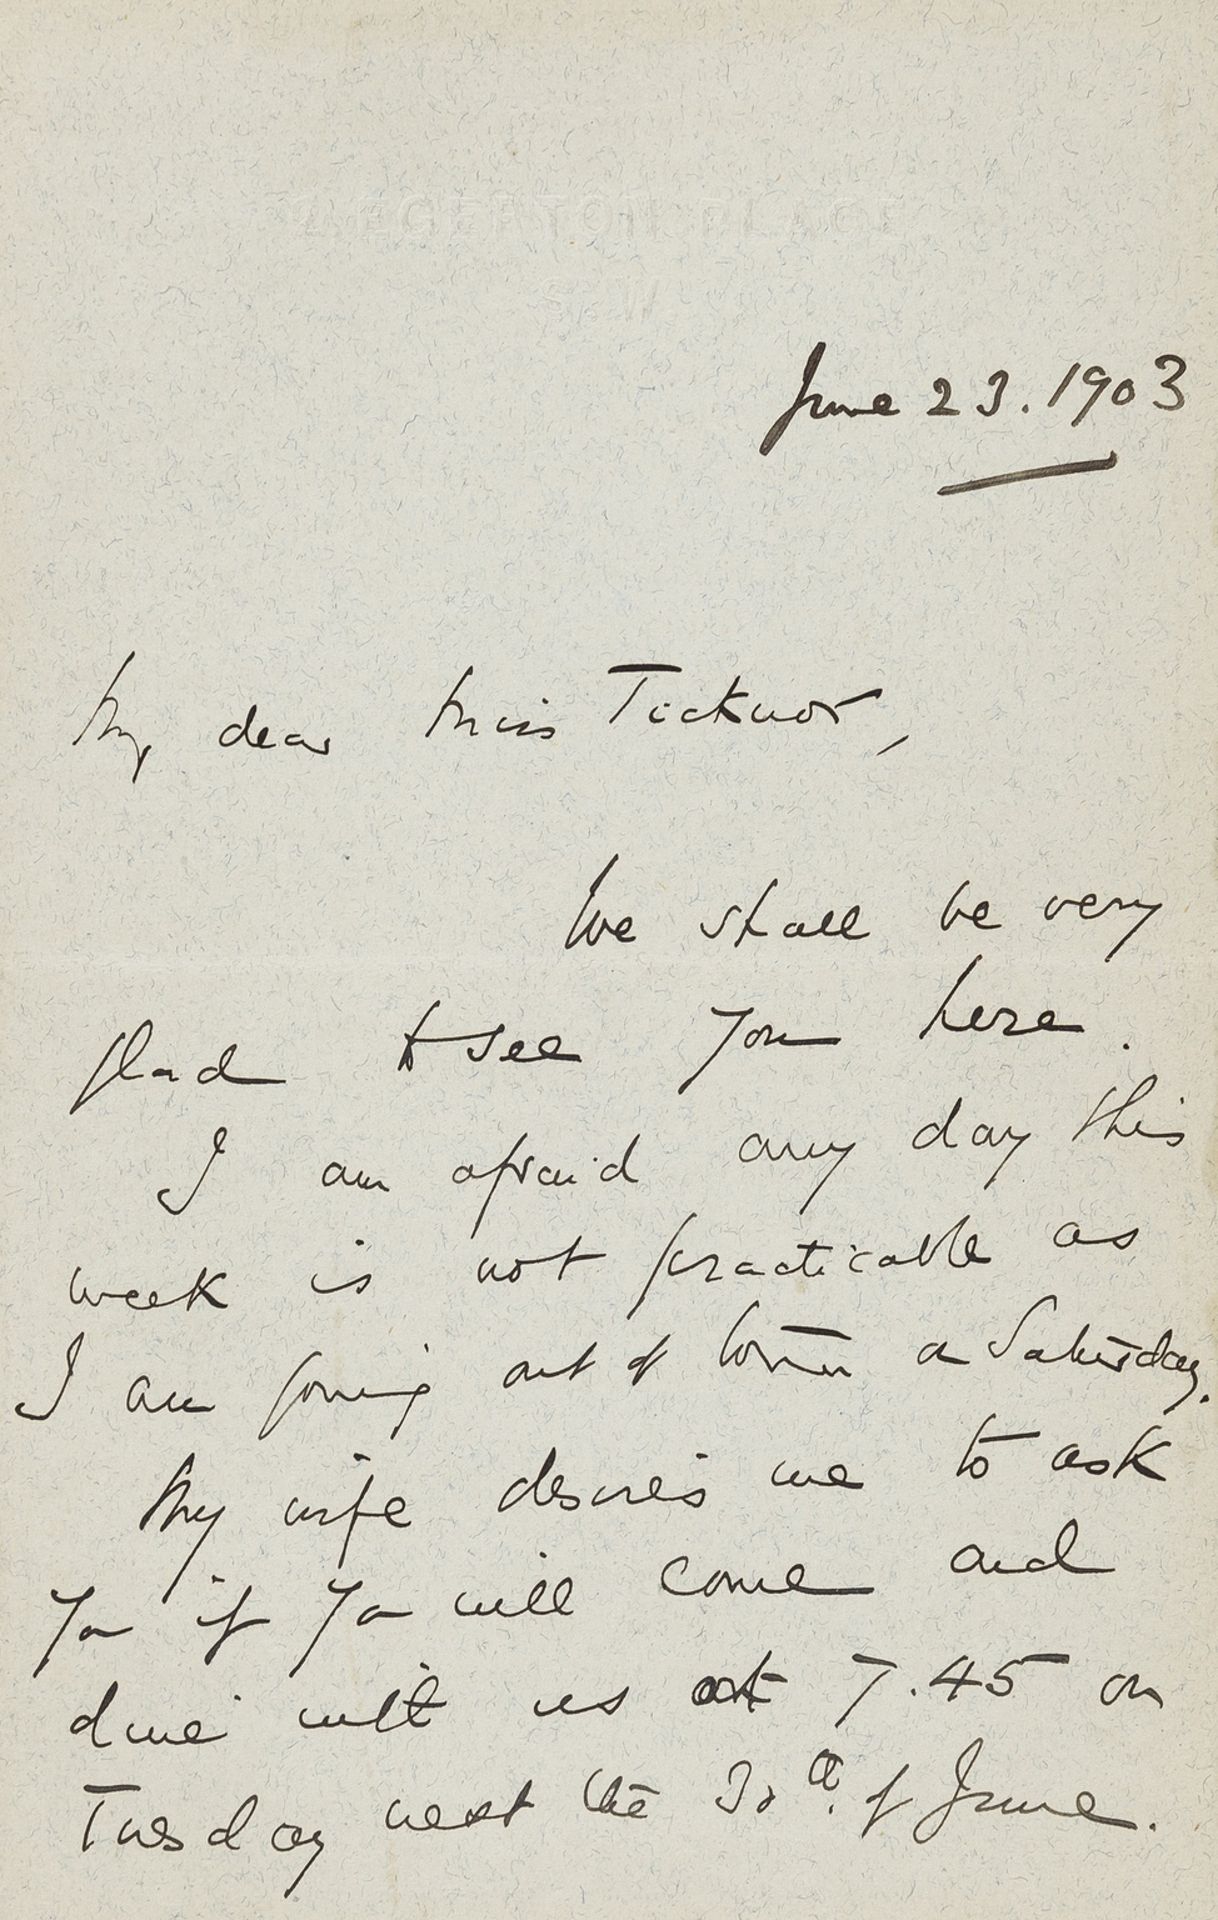 2 EGERTON PLACE
S.W.
June 23. 1903
My dear Miss Ticknor,
We shall be very
glad to see you here.
I am afraid any day this
week is not practicable as
I am going out of town a Saturday.
My wife desires me to ask
you if you will come and
dine with us at 7.45 on
Tuesday next the 30th. of June.